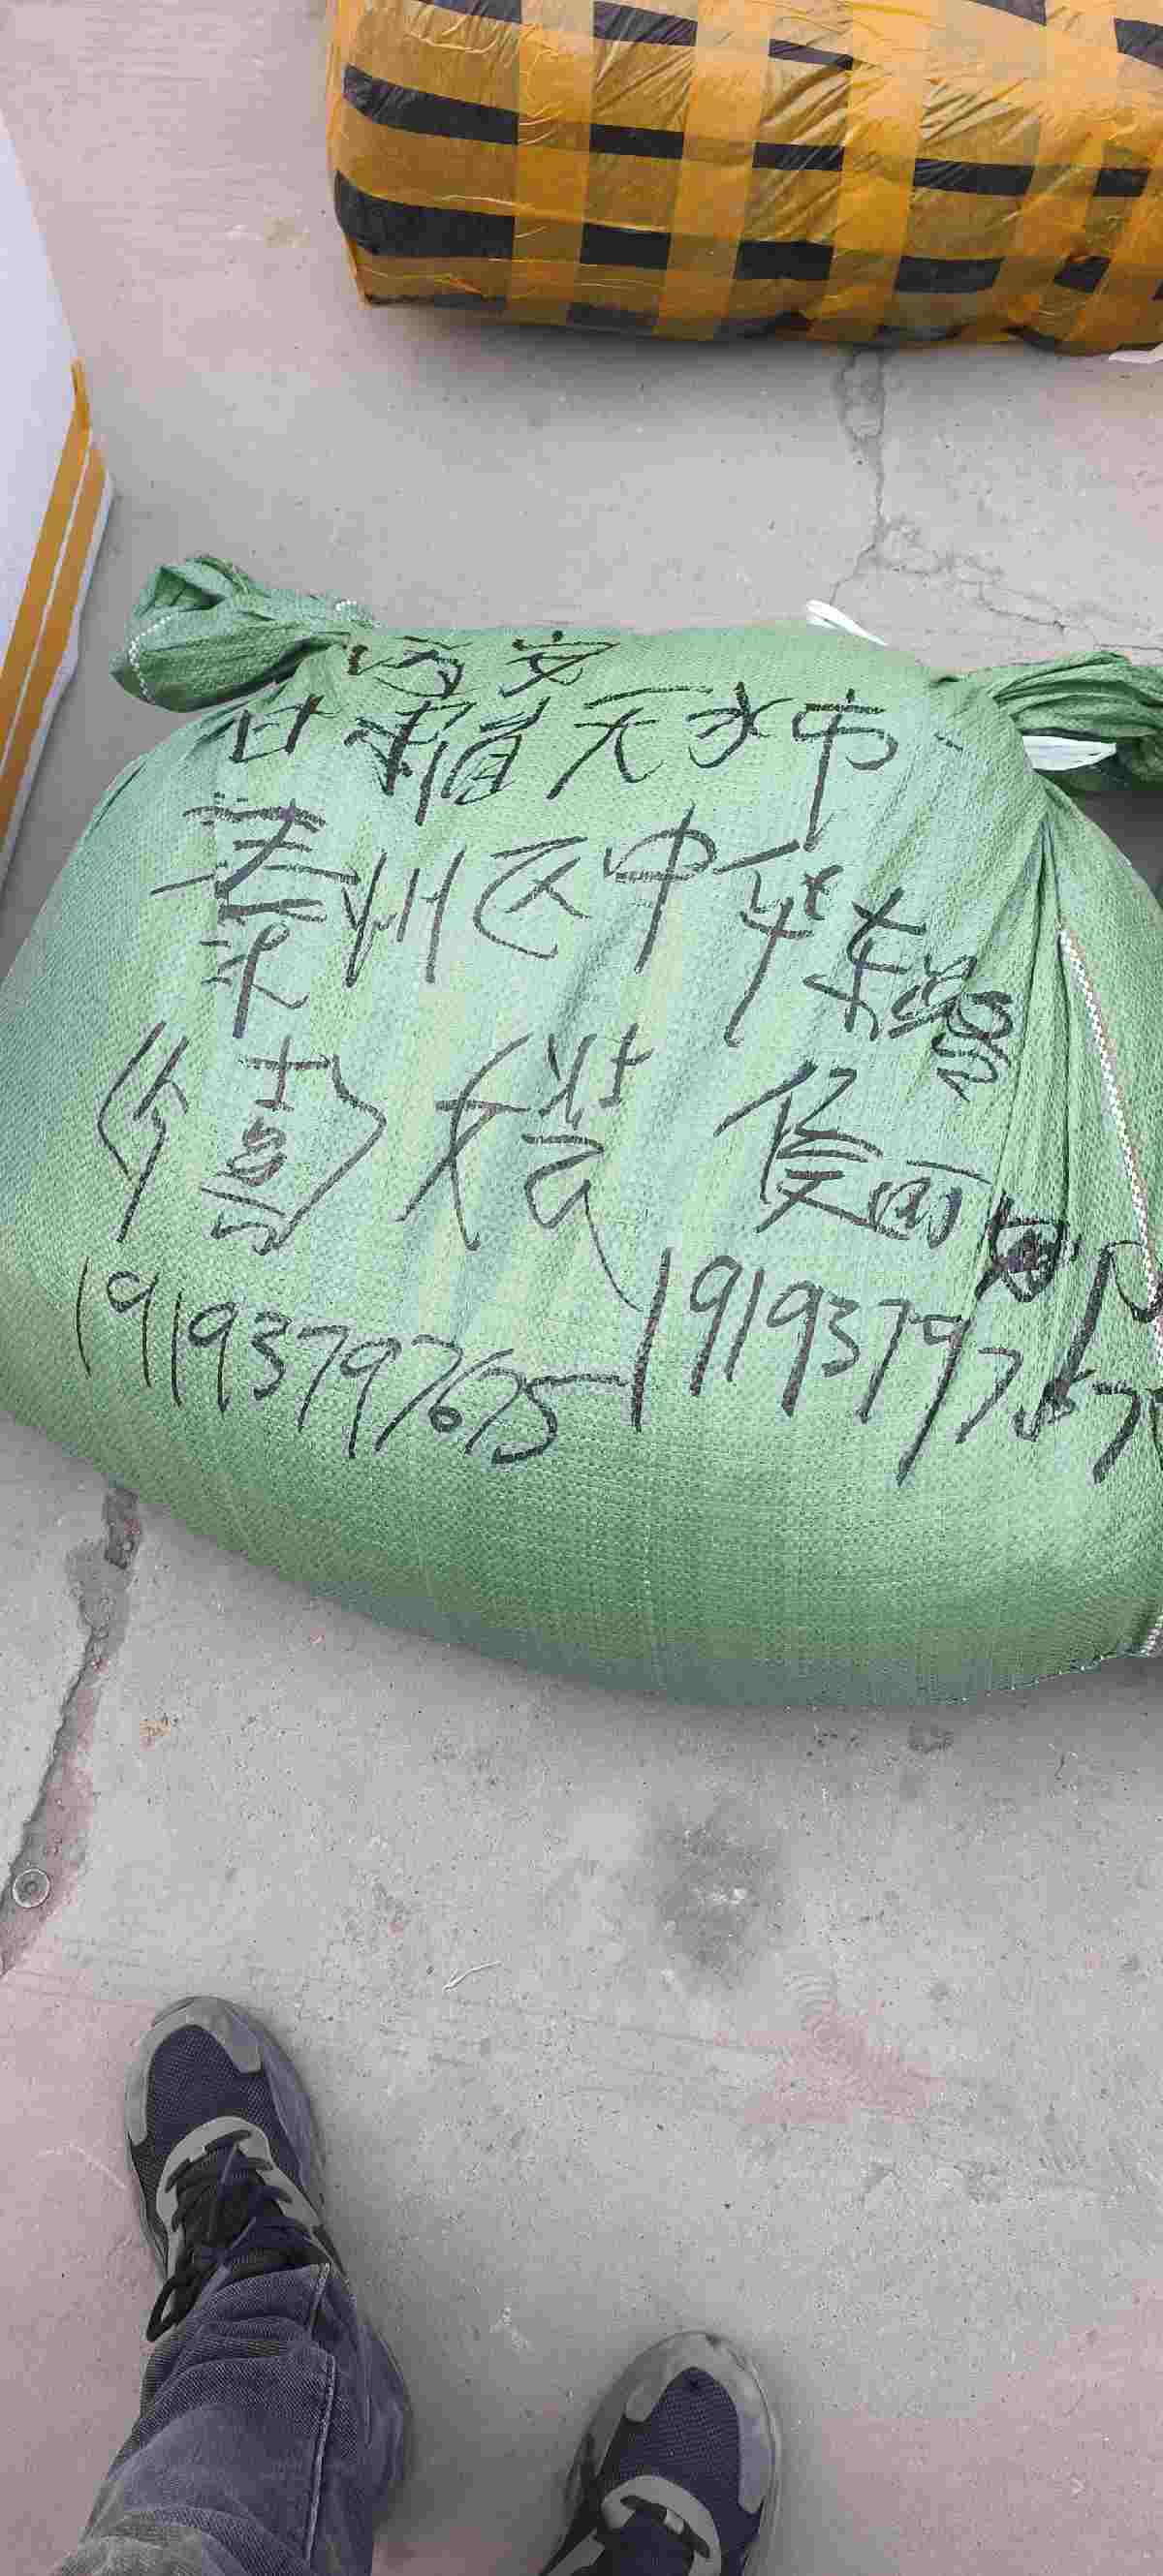 西安
甘肃省天水市
秦州区中华东路
乡彭女装 俊丽
19193797675 191937976